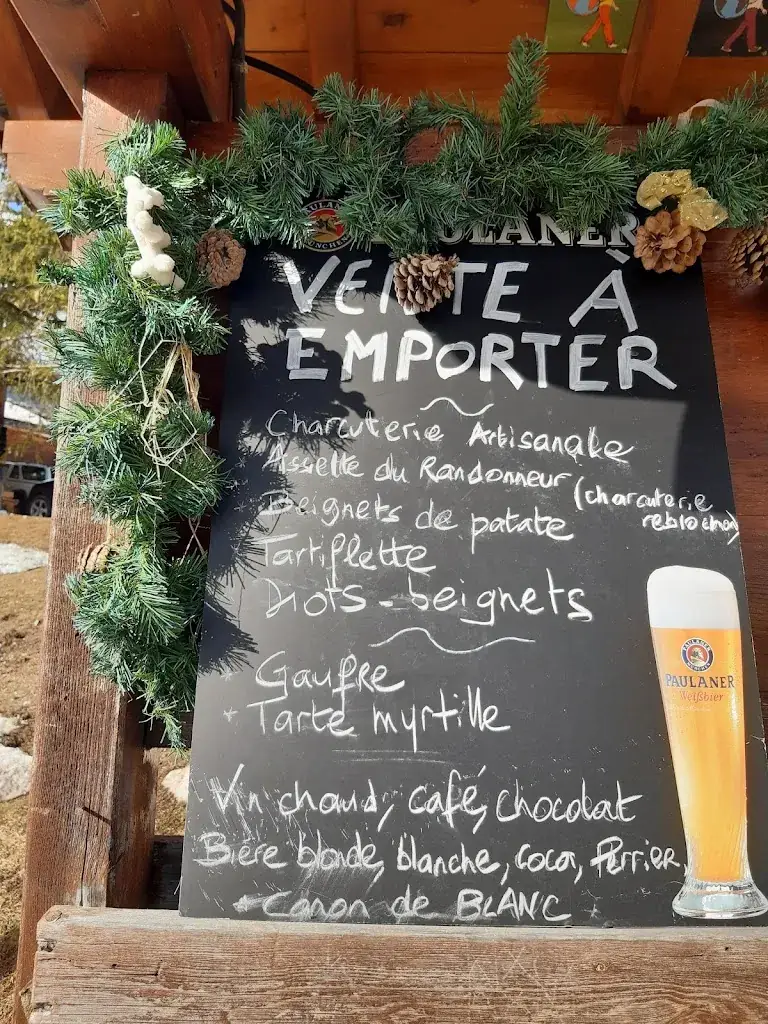 PAULANER
MÜNCHEN
PAULANER
VENTE À
EMPORTER
Charcuterie Artisanale
Assiette du Randonneur (charcuterie
reblochon)
Beignets de patate
Tartiflette
Diots - beignets
Gaufre
Tarte myrtille
Vin chaud, café, chocolat
Bière blonde, blanche, coca, Perrier,
Canon de BLANC
PAULANER
MÜNCHEN
PAULANER
Weißbier